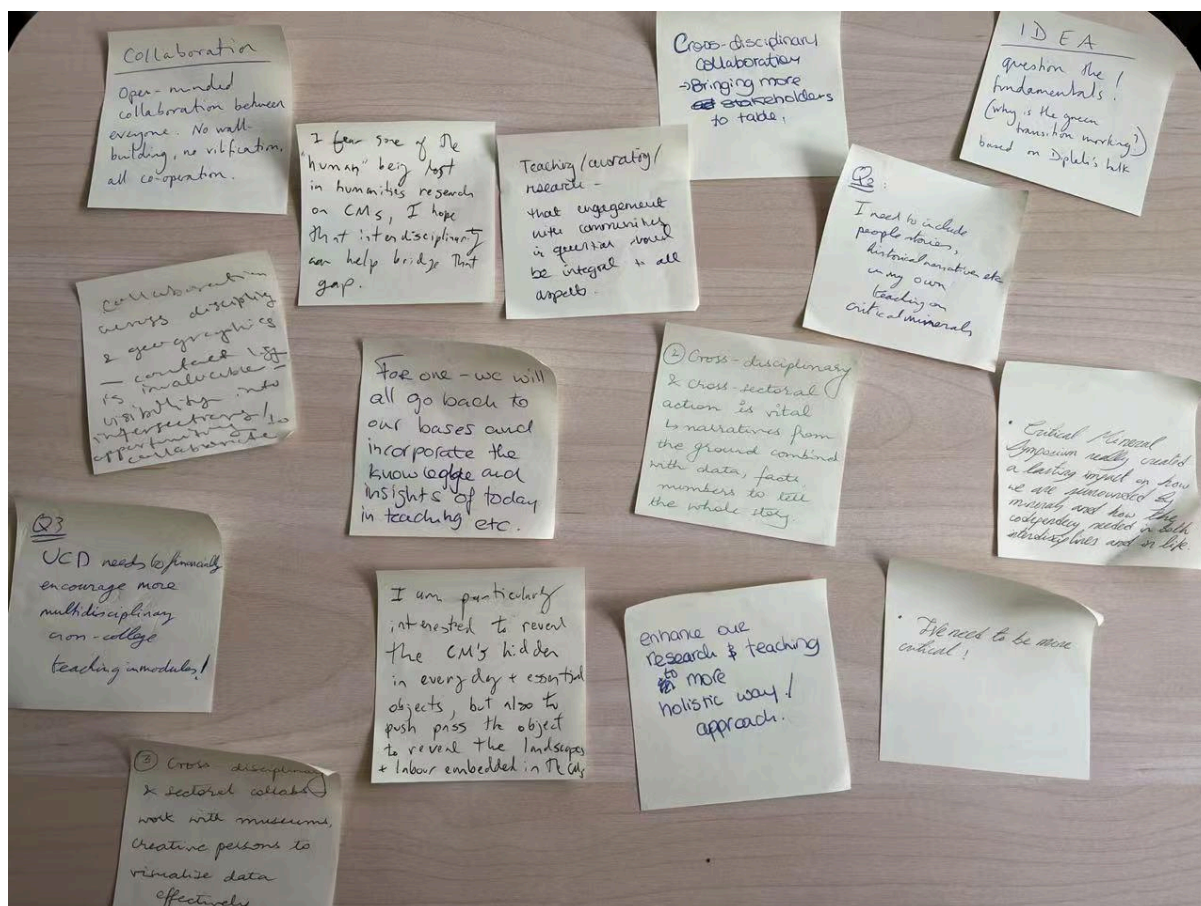 Collaboration
Open-minded
collaboration between
everyone. No wall-
building, no vilification,
all co-operation.
Cross-disciplinary
collaboration
→Bringing more
stakeholders
to table.
IDEA
question the!
fundamentals!
(why is the green
transition working?)
based on talk
I fear some of the
"human" being lost
in humanities research
on CMs, I hope
that interdisciplinarity
can help bridge that
gap.
Teaching/curating/
research -
that engagement
with communities
in question should
be integral to all
aspects.
Q2:
I need to include
people stories,
historical narratives etc
in my own
teaching on
critical minerals
Collaboration
across discipline
& geographies
is invaluable -
visibility into
intersections/
opportunity to
collaborate
For one - we will
all go back to
our bases and
incorporate the
knowledge and
insights of today
in teaching etc.
② Cross-disciplinary
& cross-sectoral
action is vital
to narratives from
the ground combined
with data, facts,
numbers to tell
the whole story.
• Critical Mineral
Symposium really created
a lasting impact on how
we are surrounded by
minerals and how the
codependency needed in both
interdisciplines and in life.
Q3
UCD needs to financially
encourage more
multidisciplinary
cross-college
teaching in modules!
I am particularly
interested to reveal
the CM's hidden
in everyday + essential
objects, but also to
push pass the object
to reveal the landscapes
+ labour embedded in the CMs
enhance our
research & teaching
to more
holistic way/
approach.
• We need to be more
critical!
③ Cross disciplinary
& sectoral collabs
work with museums,
creative persons to
visualise data
effectively